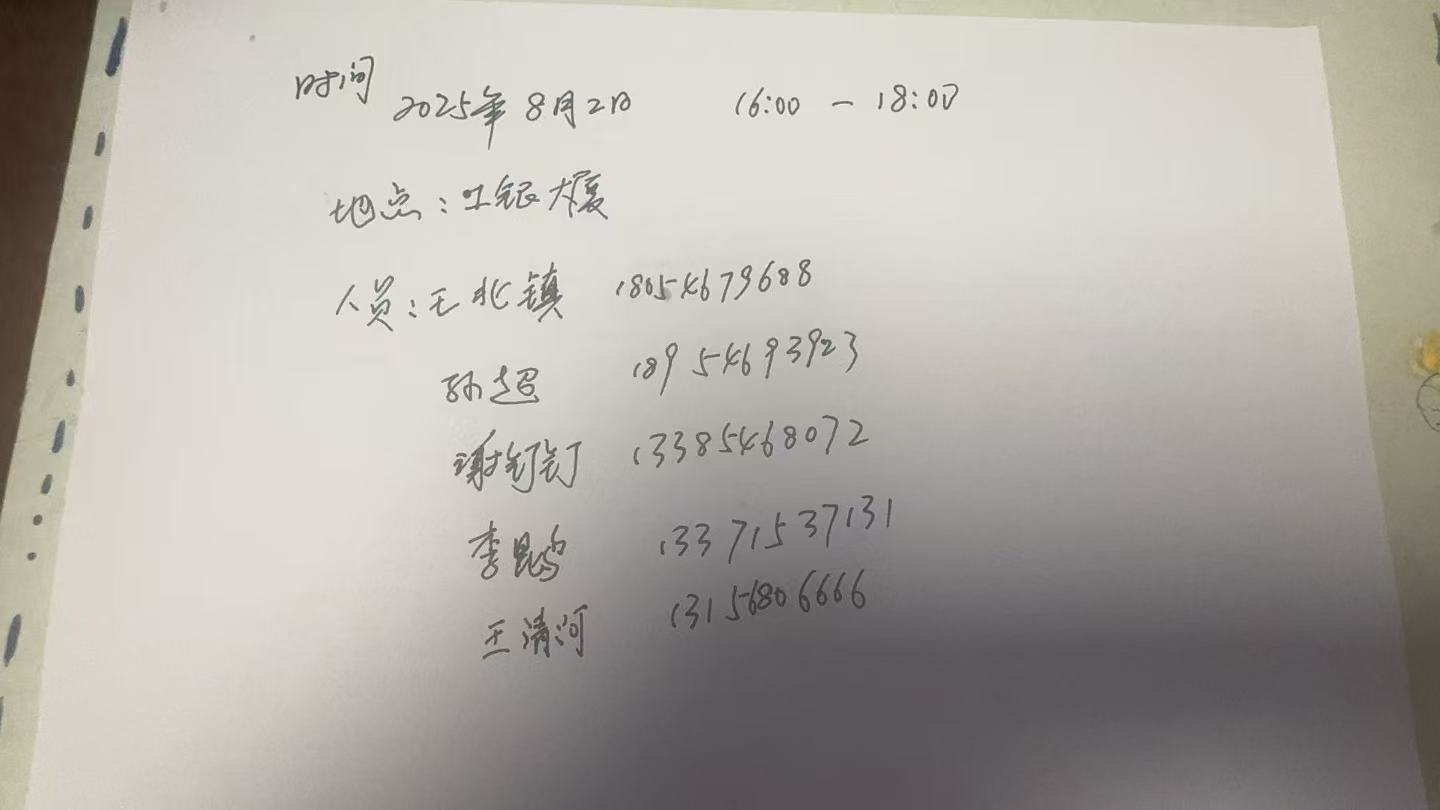 时间 2025年8月2日 16:00 — 18:00
地点：工银大厦
人员：王北镇 18054679688
孙超 18954693923
谢钉钉 13385468072
李昆鹏 13371537131
王清河 13156806666